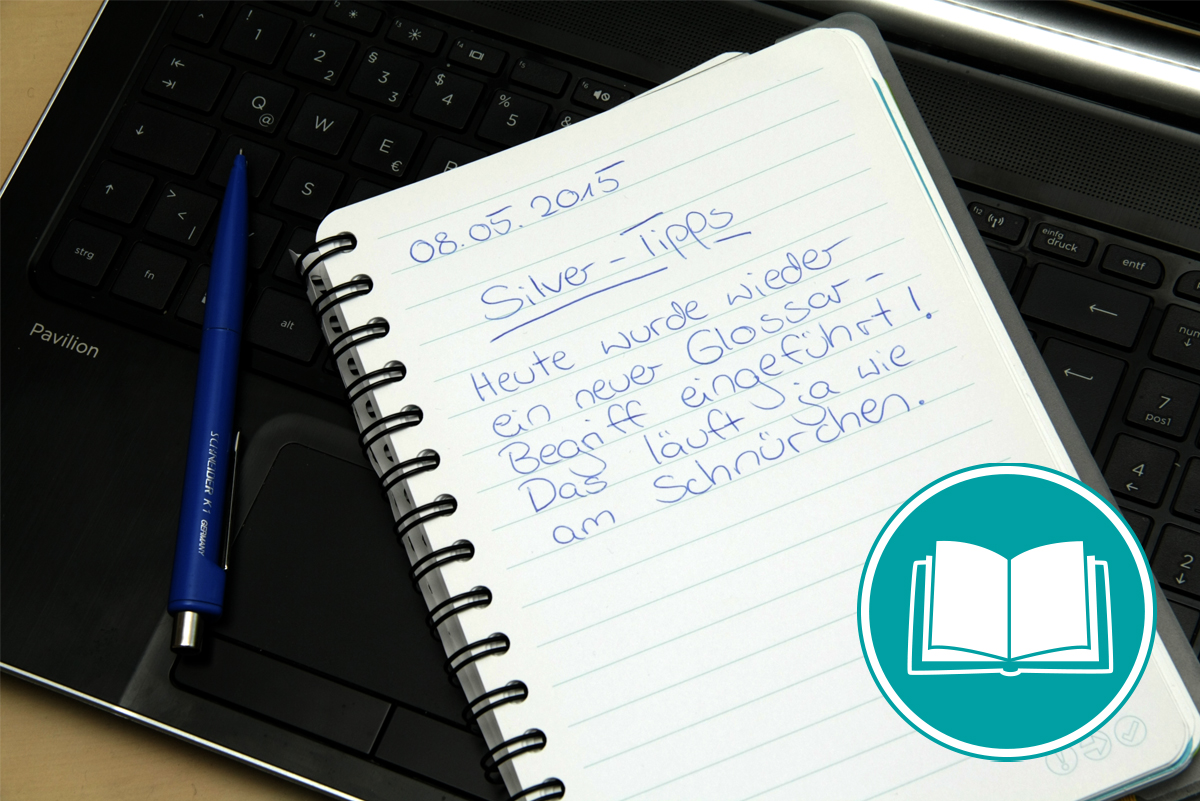 08.05.2015
Silver-Tipps
Heute wurde wieder
ein neuer Glossar-
Begriff eingeführt!
Das läuft ja wie
am Schnürchen.
SCHNEIDER K1 GERMANY
Pavilion
! 1
" 2 2
§ 3 3
$ 4
% 5
Q @
W
E €
S
> < |
strg
fn
alt
einfg
druck
entf
num
7
pos1
4
2